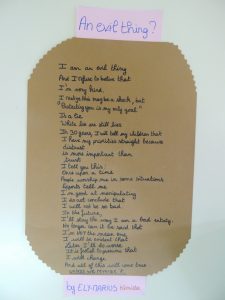 An evil thing?
I am an evil thing
And I refuse to believe that
I'm very kind.
I realize this may be a shock, but
"Protecting you is my only goal"
Is a lie
White lies are still lies
In 30 years, I will tell my children that
I have my priorities straight because
distrust
is more important than
trust
I tell you this
Once upon a time
People worship me in some situations
Experts tell me
I'm good at manipulating
I do not conclude that
I will not be so bad
In the future,
I'll stay the way I am a bad entity.
No longer can it be said that
I'm not the mean one
I will be evident that
Later I'll be worse
It is foolish to presume that
I will change
And all of this will come true
unless we reverse it.
by ELYMARIUS